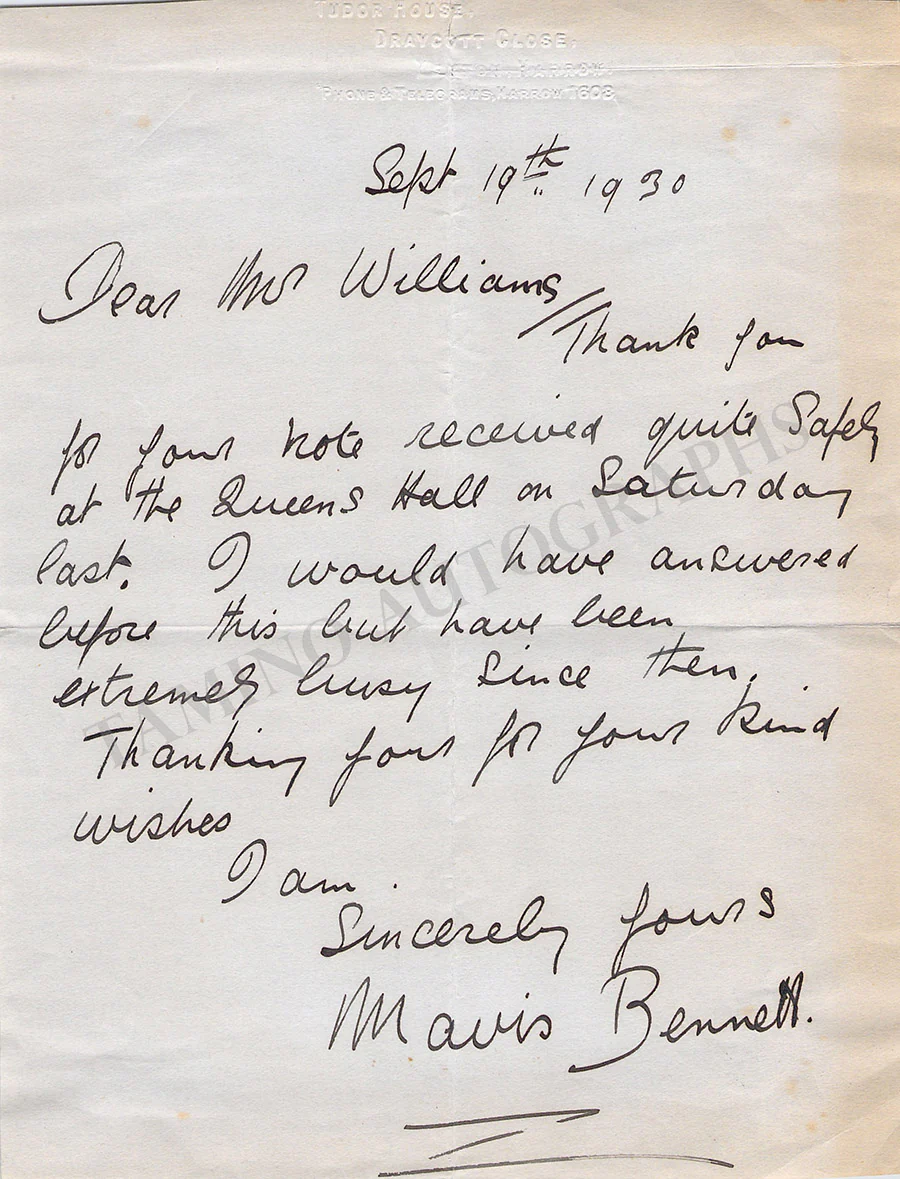 TUDOR HOUSE,
DRAYCOTT CLOSE,
HARROW.
PHONE & TELEGRAMS, HARROW 1608
Sept 19th 1930
Dear Mr Williams/
Thank you
for your note received quite Safely
at the Queens Hall on Saturday
last. I would have answered
before this but have been
extremely busy Since then.
Thanking your for your kind
wishes
I am.
Sincerely yours
Mavis Bennett.
TAMINO AUTOGRAPHS